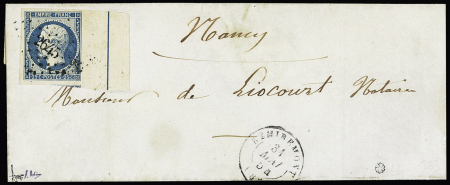 EMPIRE FRANC
2645
25 C POSTES 25 C
Nancy
Monsieur de Liocourt Notaire
REMIREMONT
31
54